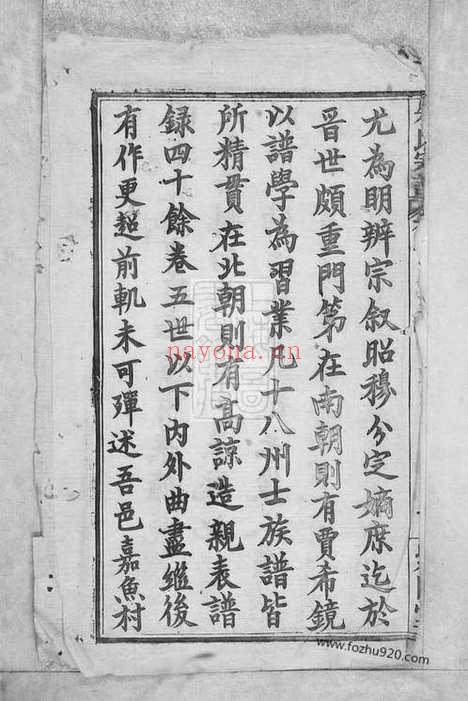 尤為明辨宗叙昭穆分定嫡庶迄於
晉世頗重門第在南朝則有賈希鏡
以譜學為習業凡十八州士族譜皆
所精貫在北朝則有高諒造親表譜
録四十餘卷五世以下內外曲盡繼後
有作更超前軌未可殫述吾邑嘉魚村
nayona.cn
www.fozhu920.com